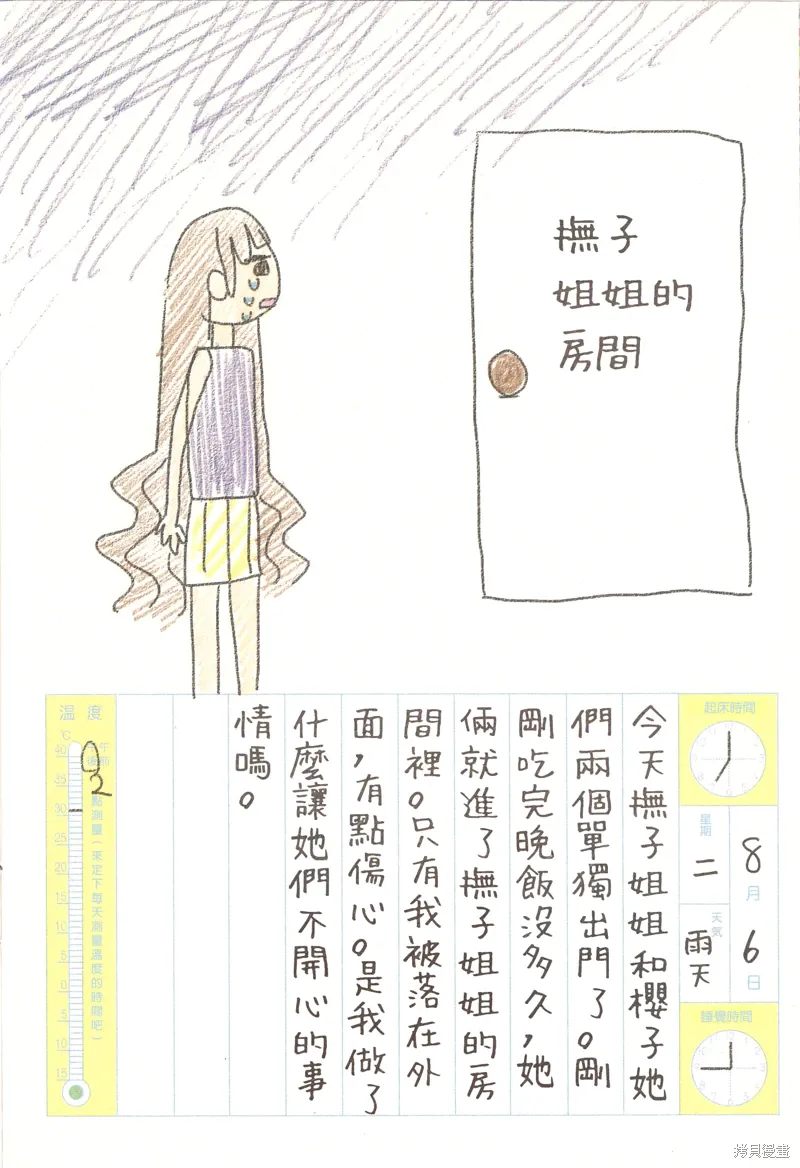 撫子
姐姐的
房間
起床時間
8月6日
星期二
天氣
雨天
睡覺時間
今天撫子姐姐和櫻子她
們兩個單獨出門了。剛
剛吃完晚飯沒多久，她
倆就進了撫子姐姐的房
間裡。只有我被落在外
面，有點傷心。是我做了
什麼讓她們不開心的事
情嗎。
溫度
℃
40
35
30
25
20
15
10
5
0
5
10
15
2
點測量（來定下每天測量溫度的時間吧）
拷貝漫畫